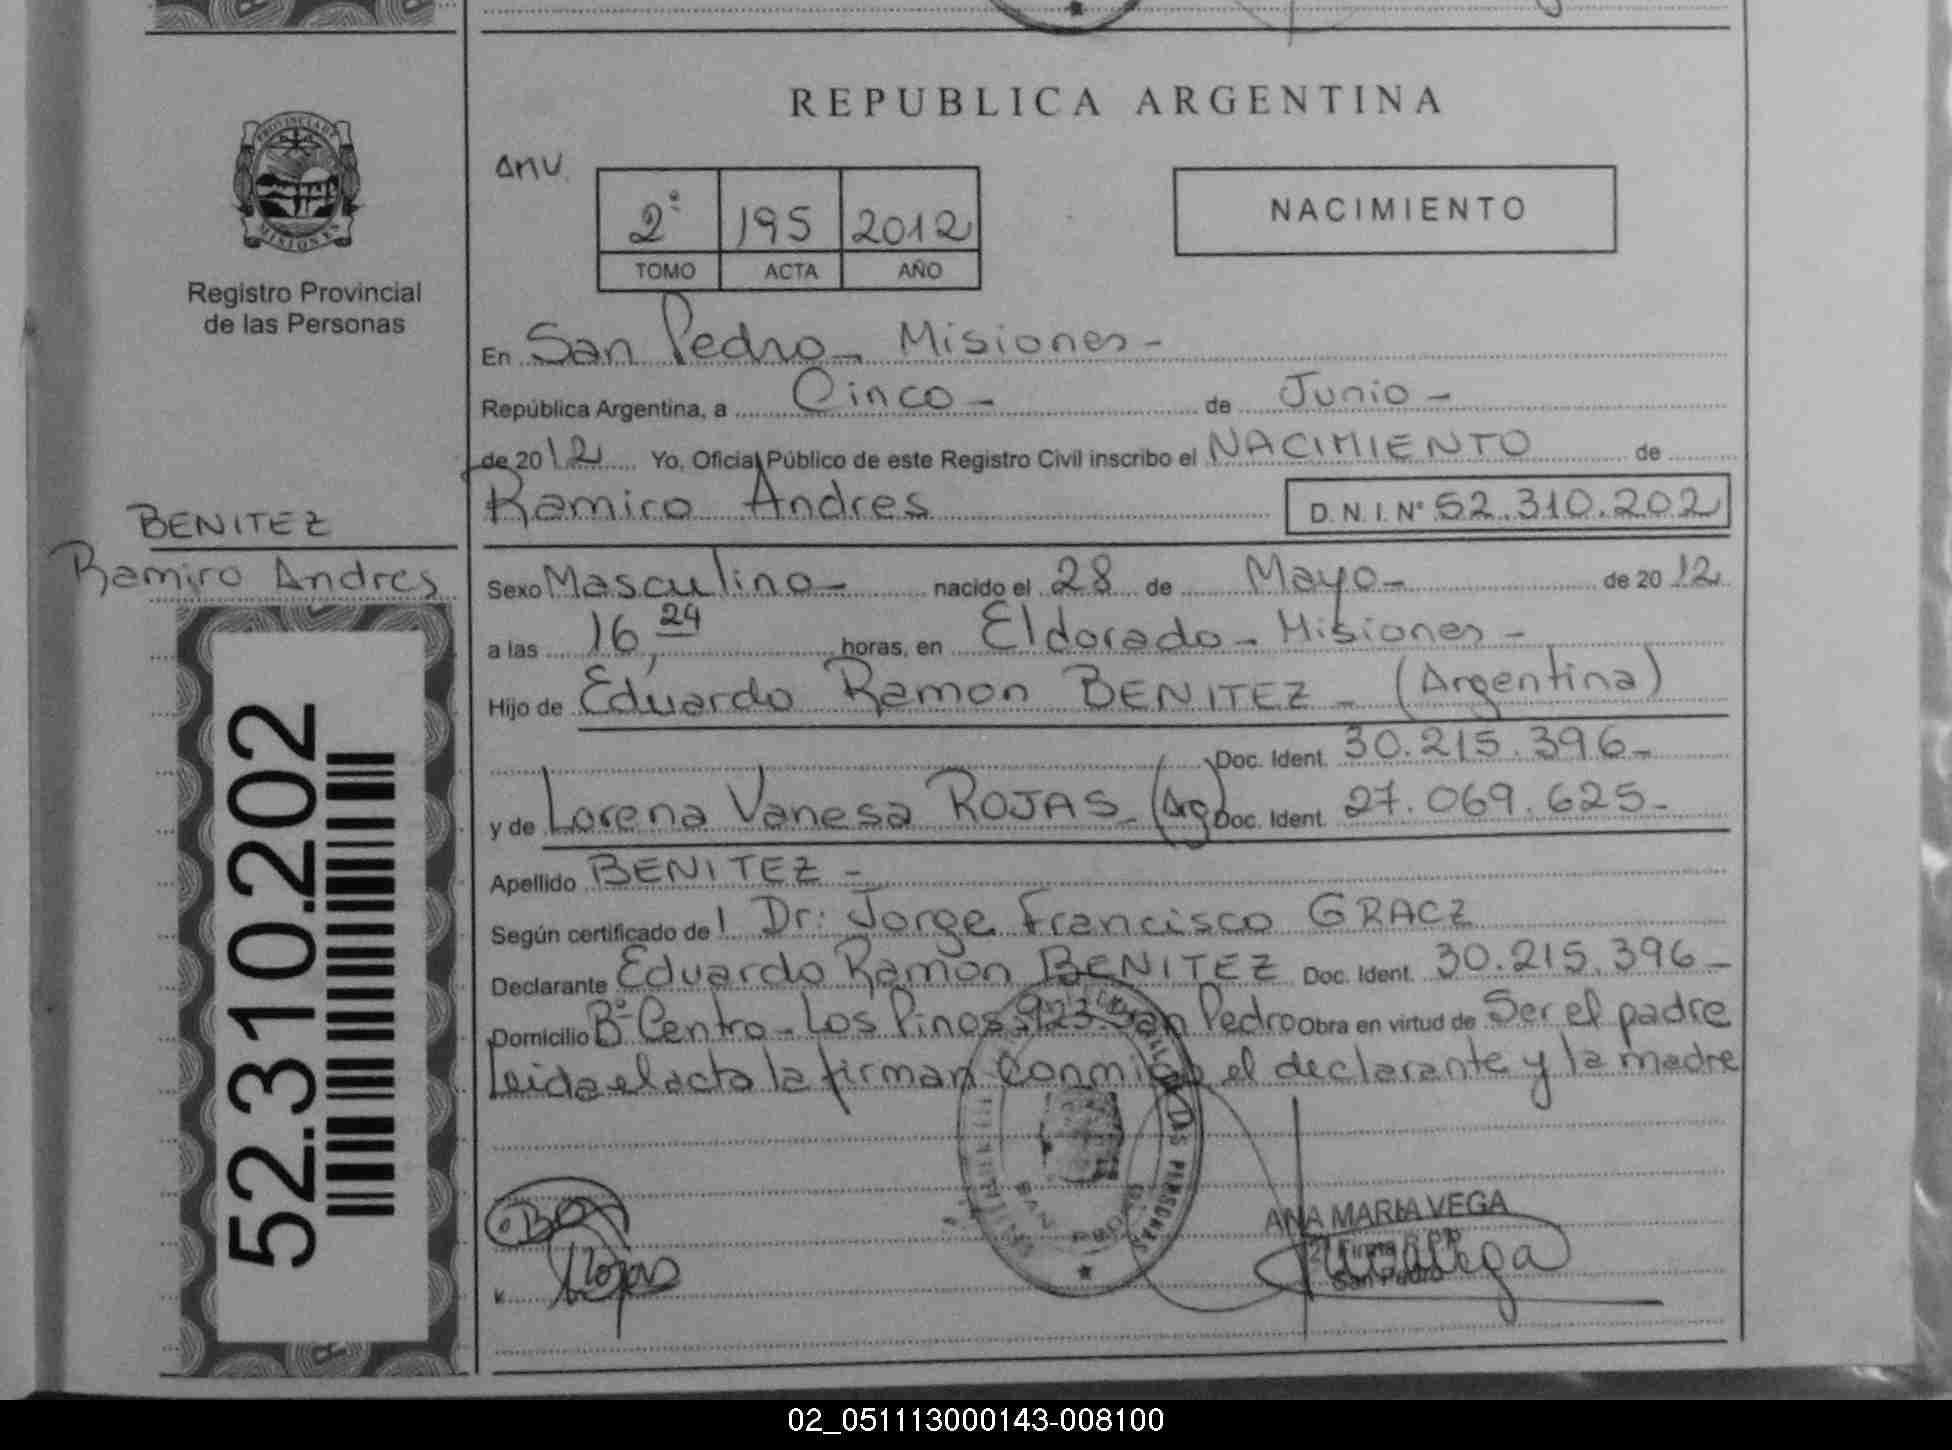 REPUBLICA ARGENTINA
PROVINCIA DE
MISIONES
Registro Provincial
de las Personas
Anv.
2º 195 2012
TOMO ACTA AÑO
NACIMIENTO
En San Pedro - Misiones -
República Argentina, a Cinco - de Junio -
de 2012 Yo, Oficial Público de este Registro Civil inscribo el NACIMIENTO de
Ramiro Andres D.N.I. Nº 52.310.202
BENITEZ
Ramiro Andres
Sexo Masculino - nacido el 28 de Mayo - de 2012
a las 16,24 horas, en Eldorado - Misiones -
Hijo de Eduardo Ramon BENITEZ - (Argentina)
Doc. Ident. 30.215.396 -
y de Lorena Vanesa ROJAS - (Arg) Doc. Ident. 27.069.625 -
Apellido BENITEZ -
Según certificado de l Dr: Jorge Francisco GRACZ
Declarante Eduardo Ramon BENITEZ Doc. Ident. 30.215.396 -
Domicilio Bº Centro - Los Pinos 923 - San Pedro Obra en virtud de Ser el padre
Leida el acta la firman conmigo el declarante y la madre
52.310.202
DAS PERSONAS
SAN PEDRO
Rojas
ANA MARIA VEGA
San Pedro
02_051113000143-008100